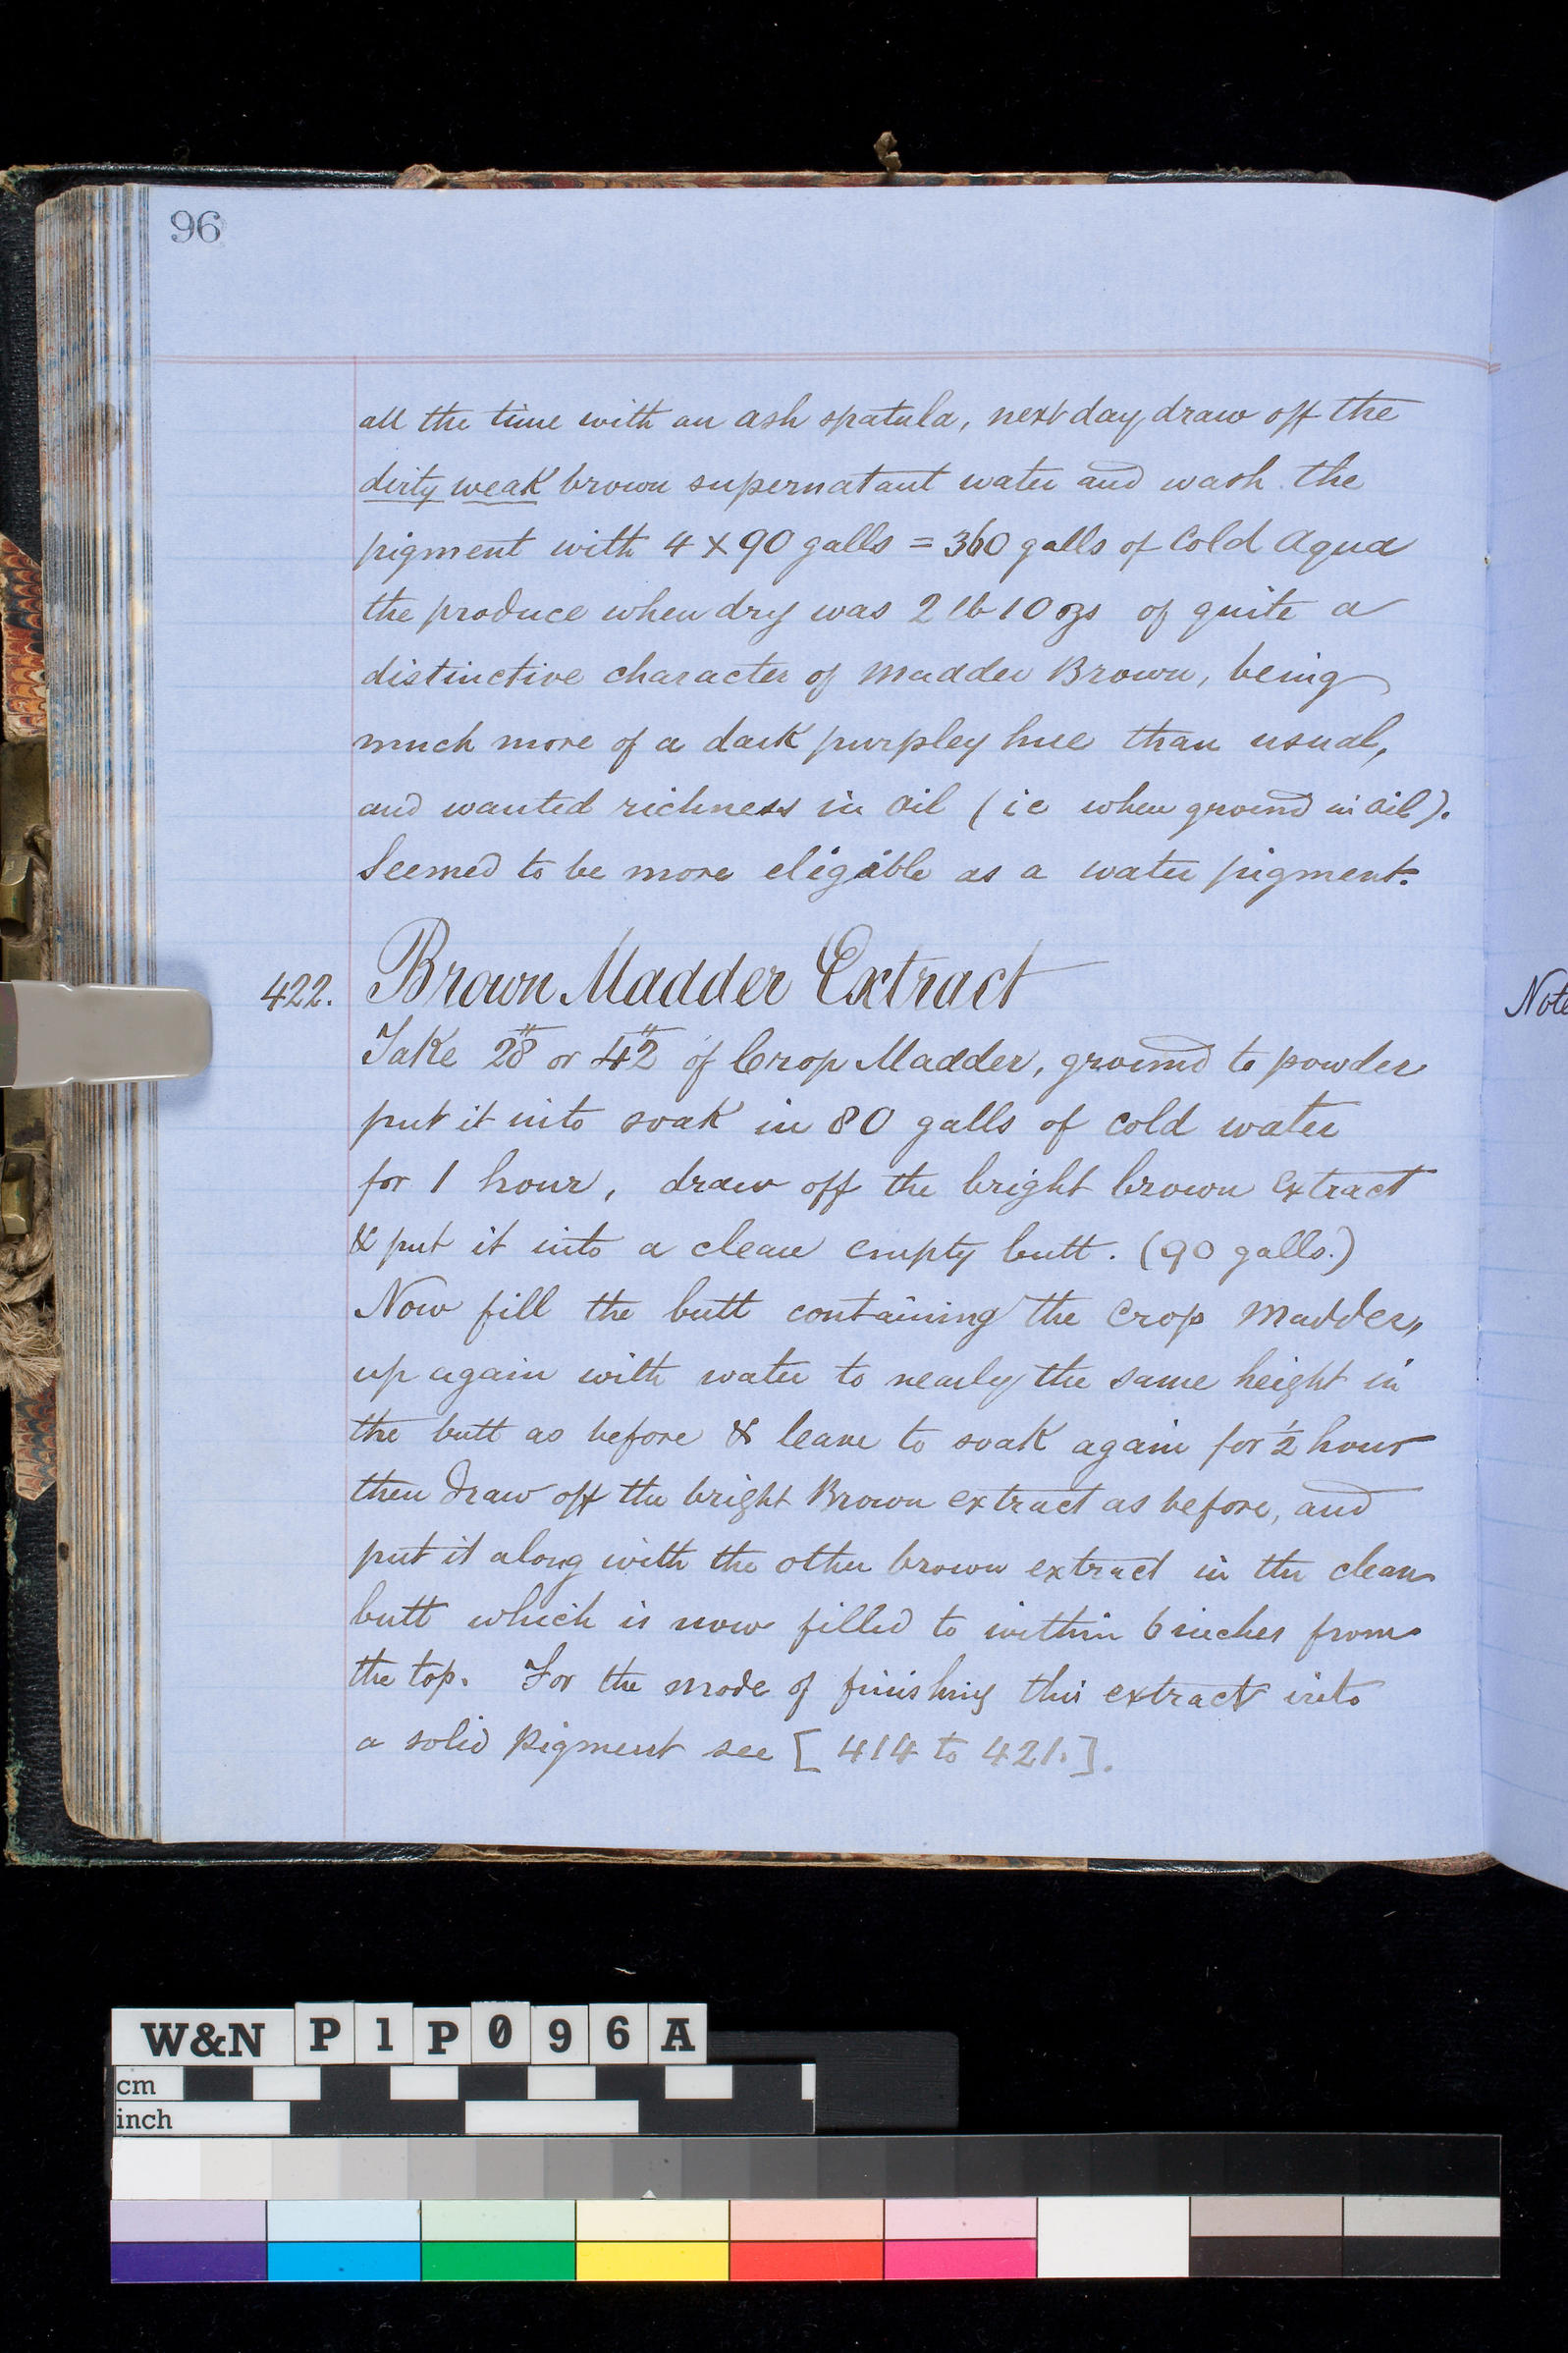 96
all the time with an ash spatula, next day draw off the
dirty weak brown supernatant water and wash the
pigment with 4 X 90 galls = 360 galls of Cold Aqua
the produce when dry was 2 lb 10 ozs of quite a
distinctive character of Madder Brown, being
much more of a dark purpley hue than usual,
and wanted richness in Oil (ie when ground in Oil).
Seemed to be more eligible as a water pigment.
422. Brown Madder Extract
Note
Take 28 or 42 of Crop Madder, ground to powder
put it into soak in 80 galls of cold water
for 1 hour, draw off the bright brown extract
& put it into a clean empty butt. (90 galls.)
Now fill the butt containing the Crop Madder,
up again with water to nearly the same height in
the butt as before & leave to soak again for ½ hour
then draw off the bright Brown extract as before, and
put it along with the other brown extract in the clean
butt which is now filled to within 6 inches from
the top. For the mode of finishing this extract into
a solid Pigment see [414 to 421.].
W&N P1P096A
cm
inch